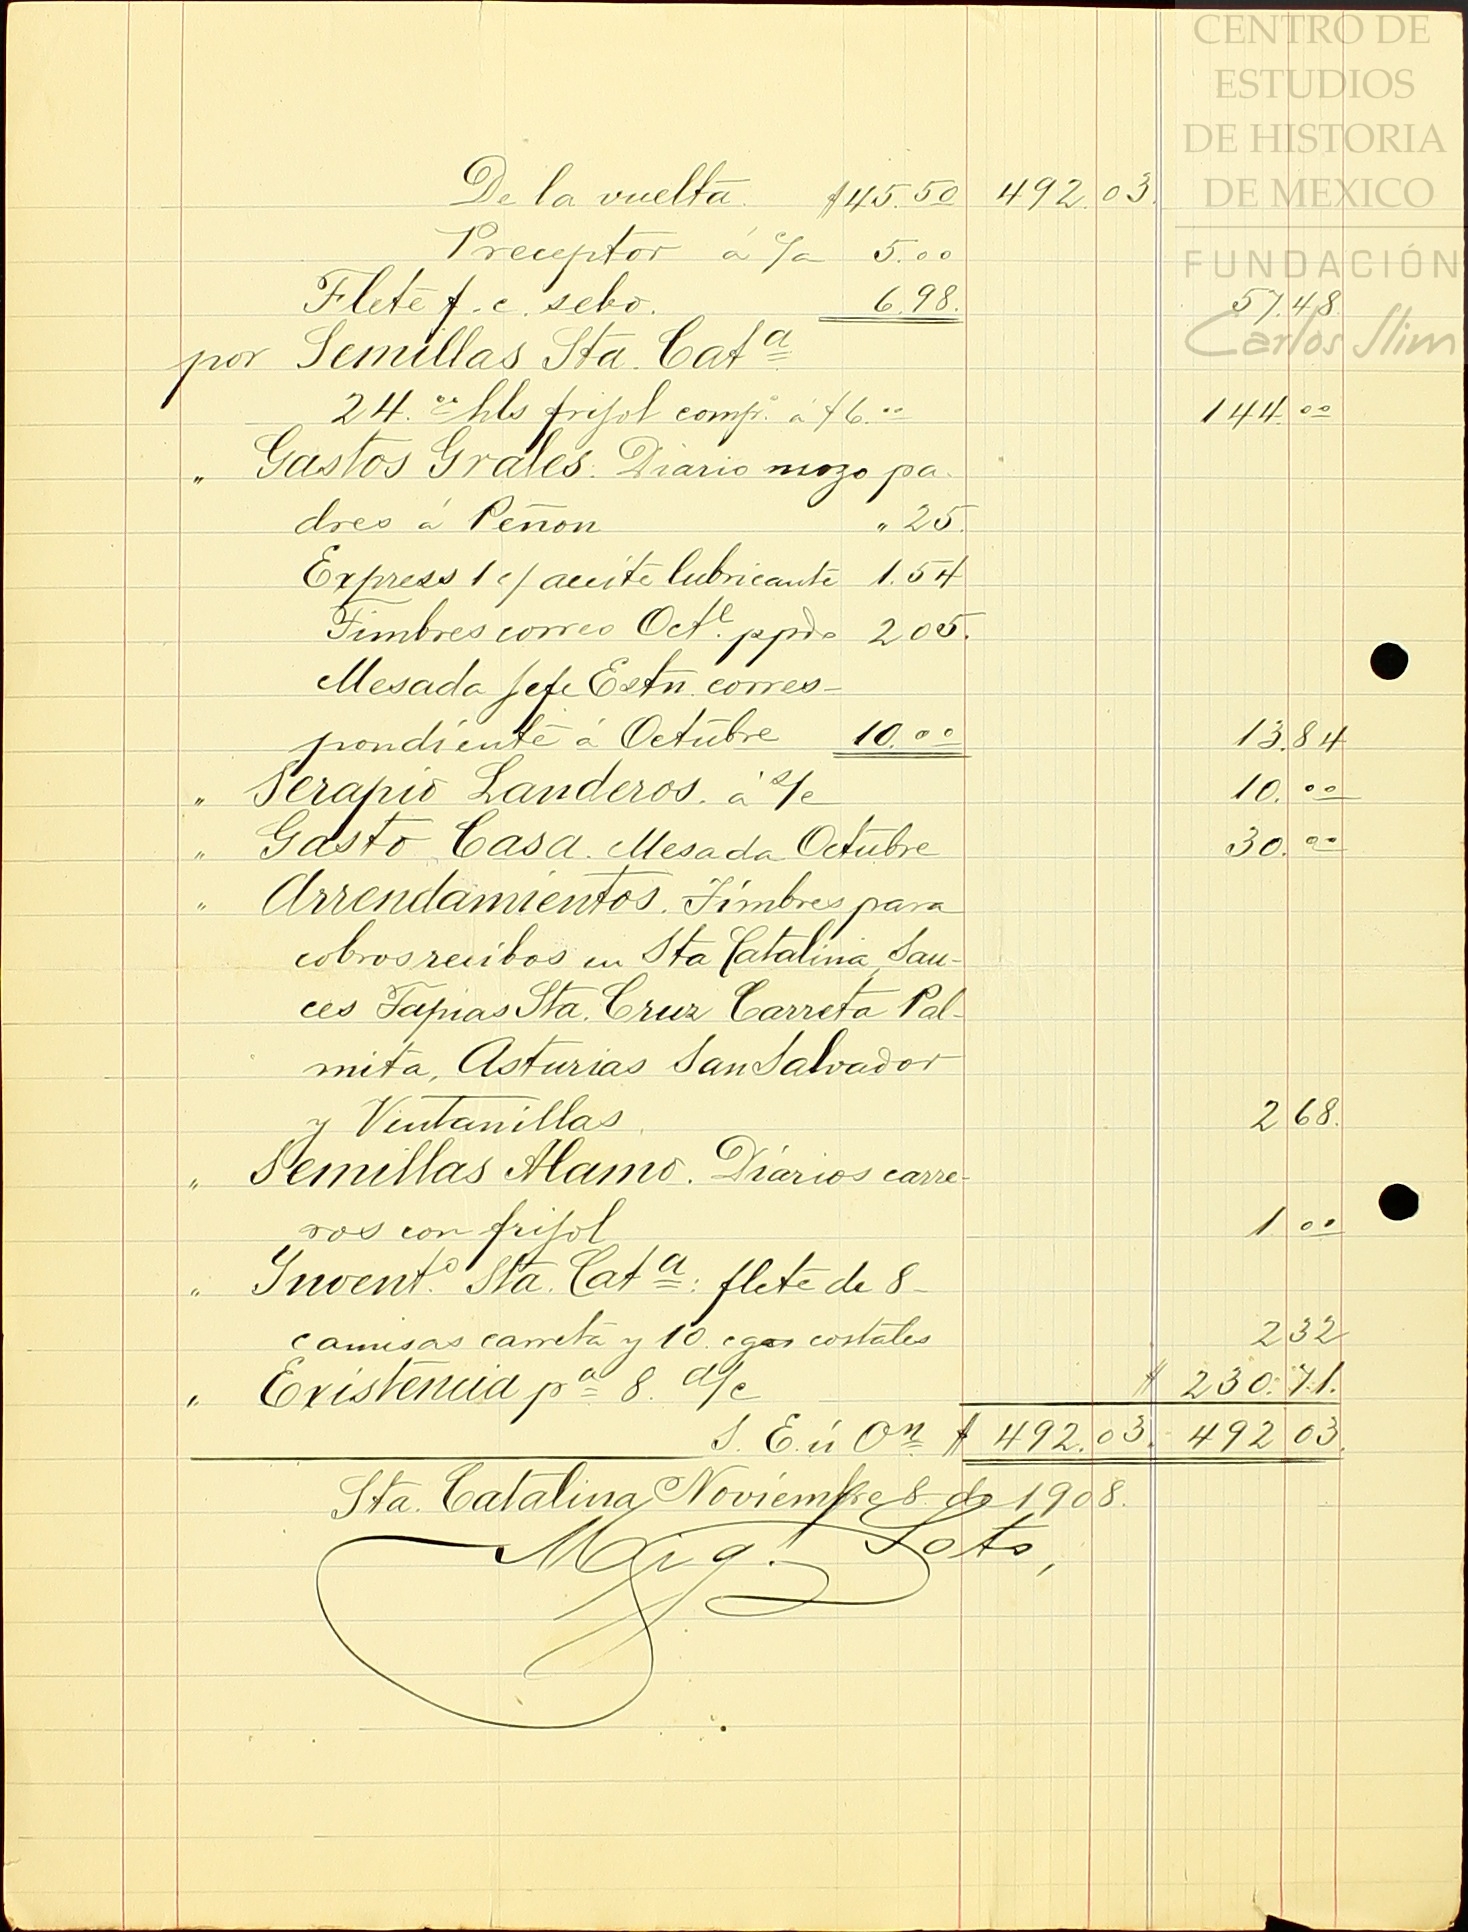 CENTRO DE
ESTUDIOS
DE HISTORIA
DE MEXICO
FUNDACIÓN
Carlos Slim
De la vuelta. $45.50 492.03.
Preceptor á c/a 5.00
Flete f. c. sebo. 6.98. 57.48
por Semillas Sta. Catª
24.00 hls frijol comp. á $6.00 144.00
" Gastos Grales: Diario mozo pa-
dres á Peñon " 25.
Express 1 c/ aceite lubricante 1.54
Timbres correo Oct.e ppdo 2 05.
Mesada Jefe Estn. corres-
pondiente á Octubre 10.00 13.84
" Serapio Landeros. á s/c 10.00
" Gasto Casa. Mesada Octubre 30.00
" Arrendamientos. Timbres para
cobros recibos en Sta Catalina, Sau-
ces Tapias Sta. Cruz Carreta Pal-
mita, Asturias San Salvador
y Ventanillas. 2 68.
" Semillas Alamo. Diarios carre-
ros con frijol 1 00
" Ynvent.º Sta. Catª: flete de 8-
camisas carreta y 10. costales 2 32
" Existencia pª 8. d/c $ 230.71.
S. E. ú On $ 492.03. 492 03.
Sta. Catalina Noviembre 8 de 1908.
Mig. Soto,